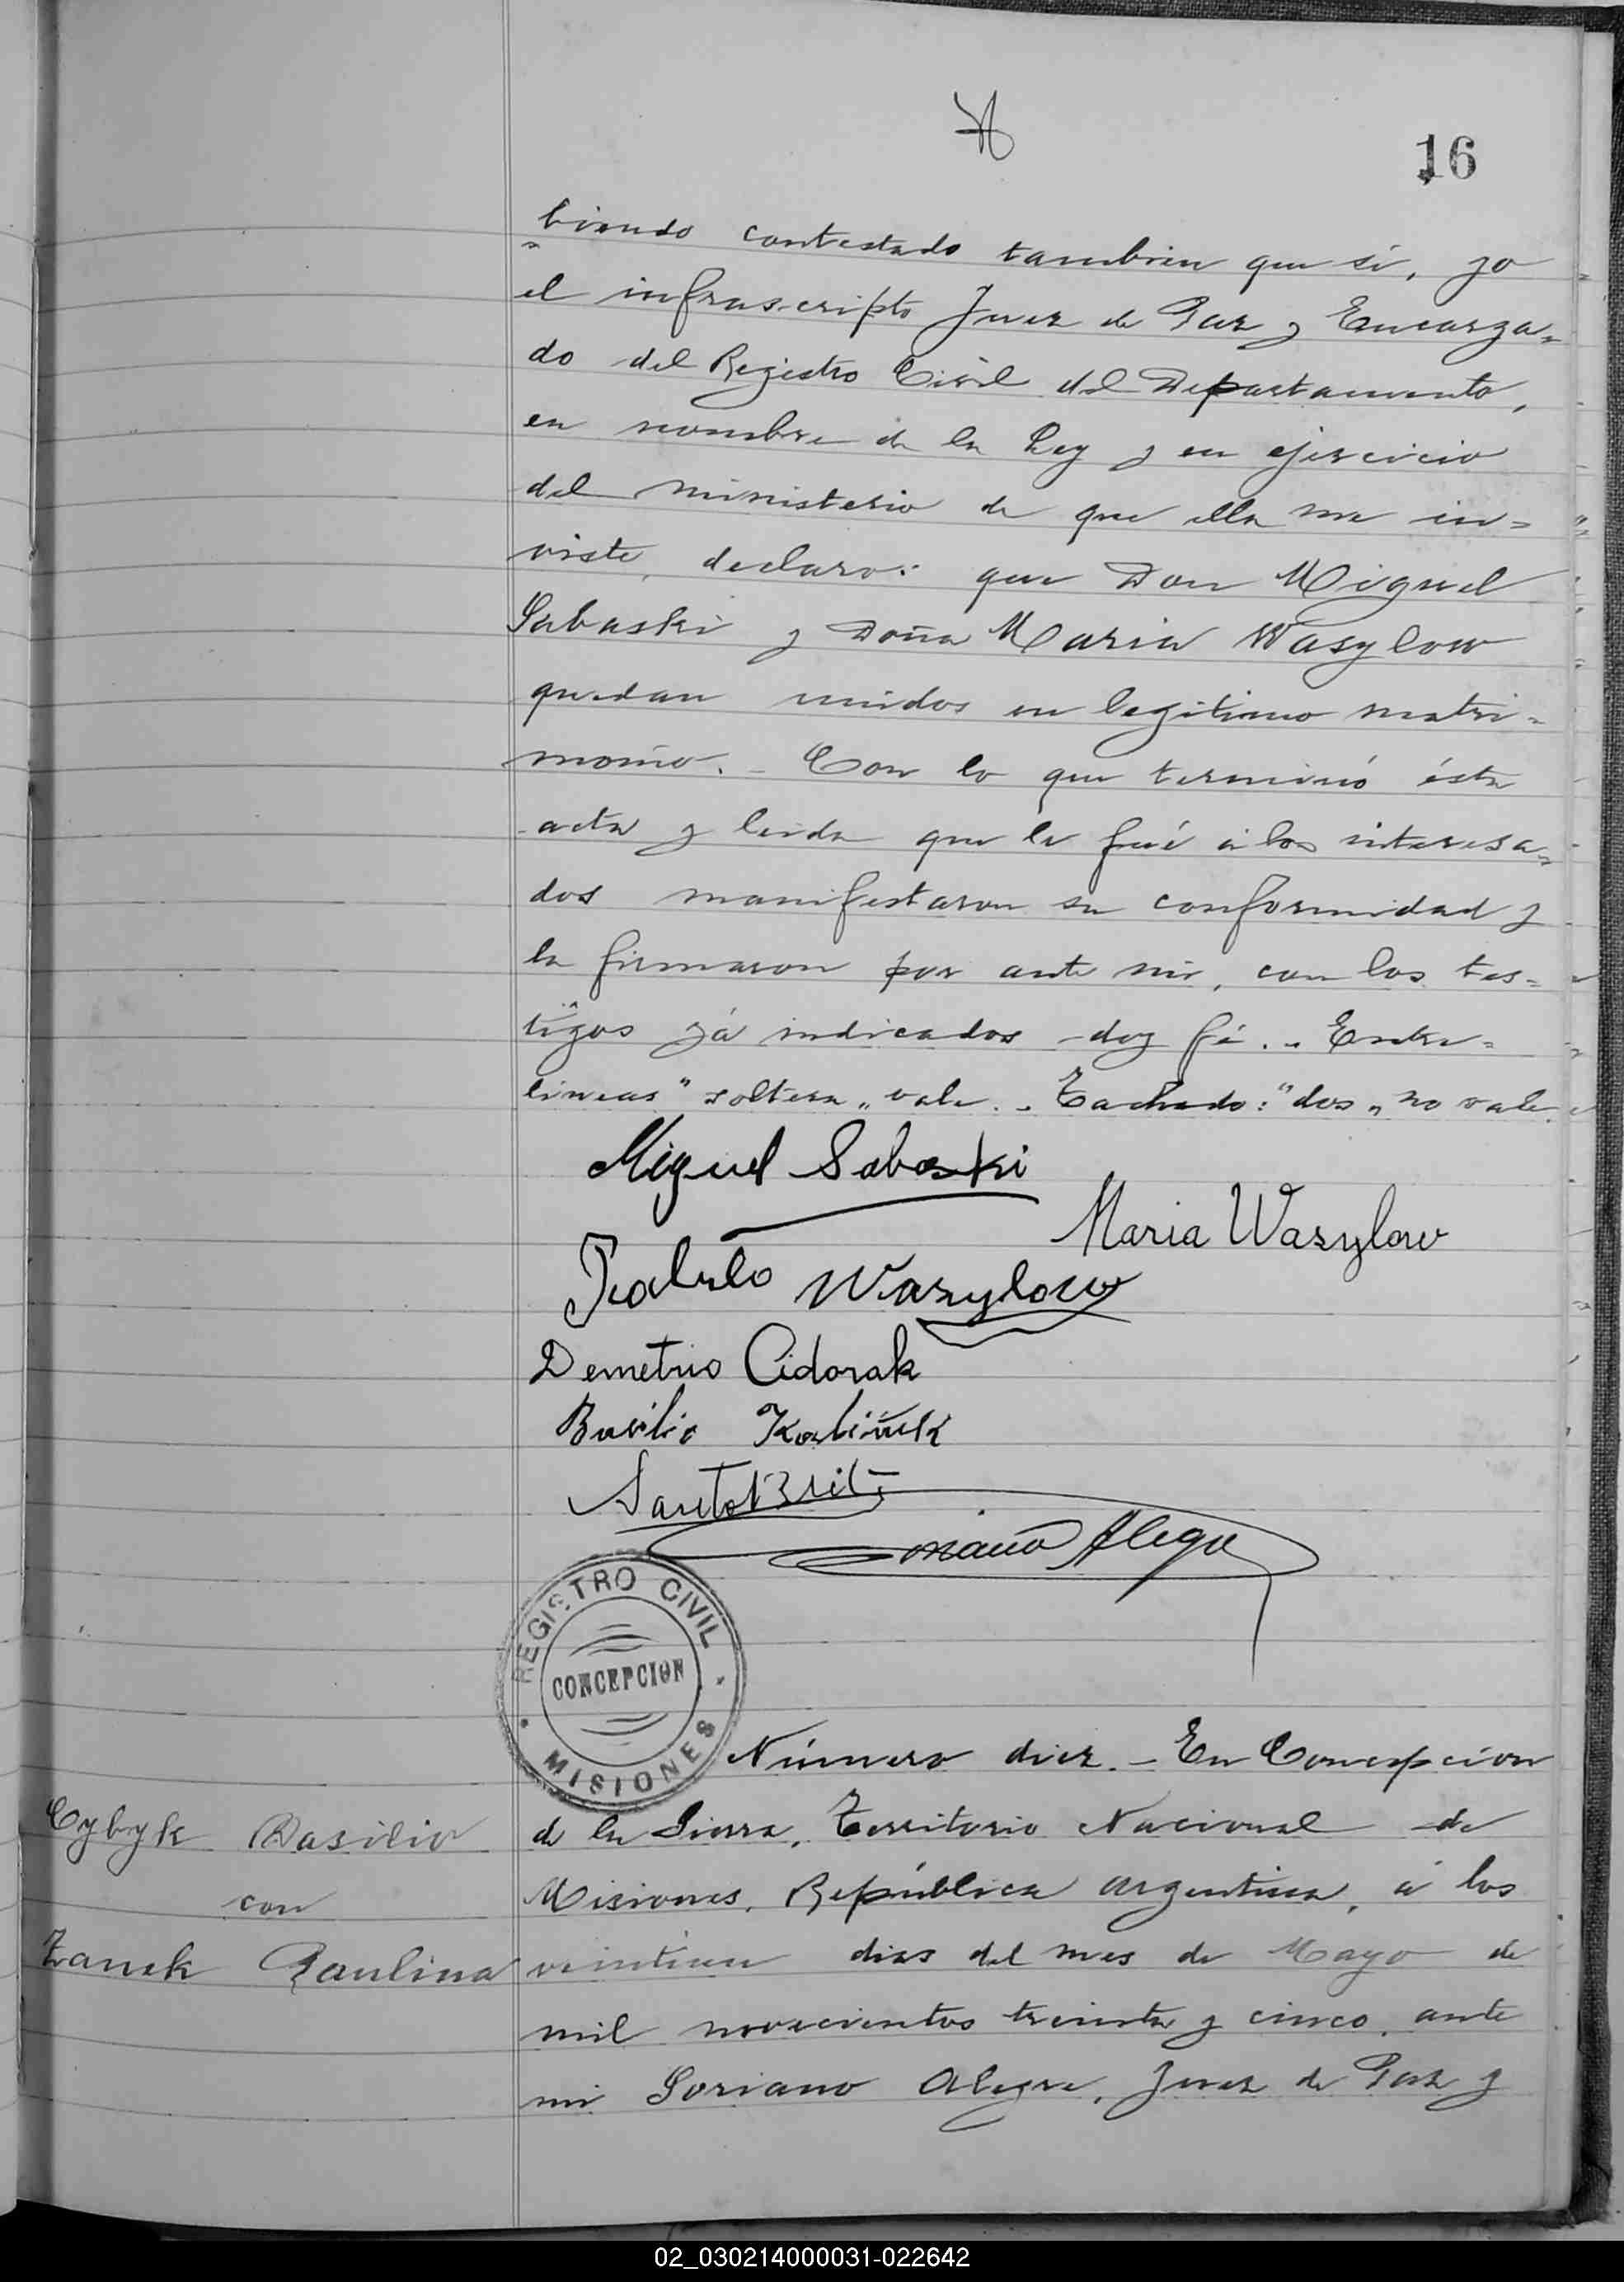 16
biendo contestado tambien que si, yo
el infrascripto Juez de Paz y Encarga=
do del Registro Civil del Departamento,
en nombre de la Ley y en ejercicio
del ministerio de que ella me in=
viste, declaro: que Don Miguel
Sabaski y Doña Maria Wasylow
quedan unidos en legitimo matri=
monio. - Con lo que terminó ésta
acta y leida que le fué á los interesa=
dos manifestaron su conformidad y
la firmaron por ante mi, con los tes=
tigos yá indicados - doy fé. - Entre=
lineas "soltera" vale. - Tachado: "dos" no vale.
Miguel Sabaski
Maria Wasylow
Pablo Wasylow
Demetrio Cidorak
Basilio
Soriano Alegre
REGISTRO CIVIL
CONCEPCION
MISIONES
Número diez. - En Concepcion
de la Sierra, Territorio Nacional de
Misiones, República Argentina, á los
veintiun dias del mes de Mayo de
mil novecientos treinta y cinco, ante
mi Soriano Alegre, Juez de Paz y
Cybyk Basilio
con
Zanek Paulina
02_030214000031-022642